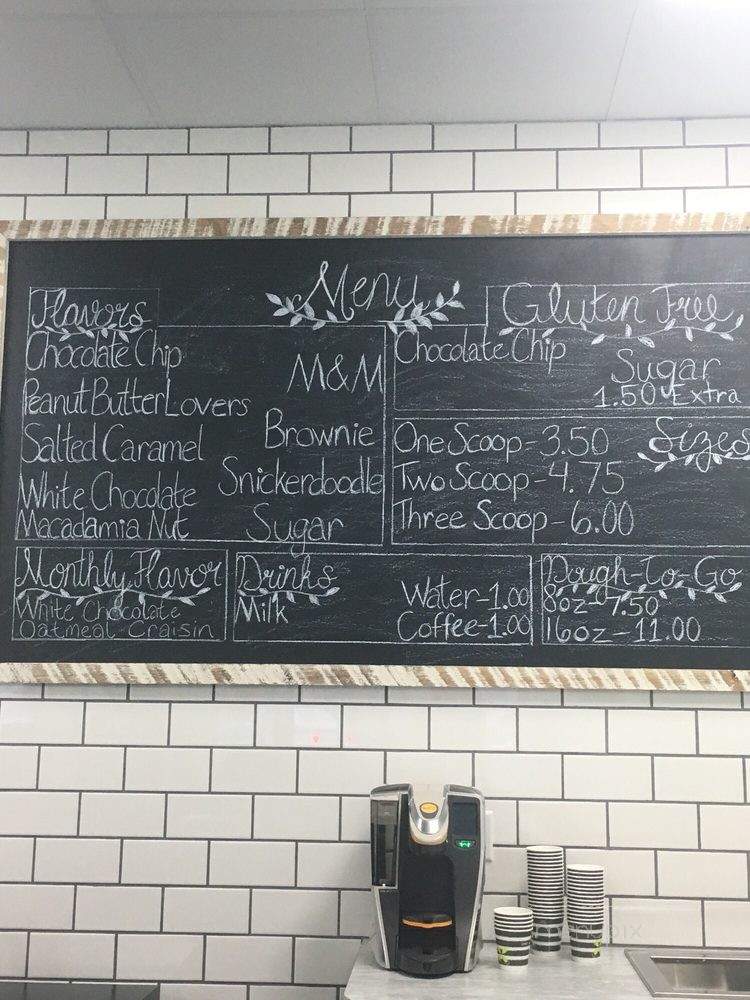 Menu
Flavors
Chocolate Chip
Peanut Butter Lovers
Salted Caramel
White Chocolate
Macadamia Nut
M&M
Brownie
Snickerdoodle
Sugar
Gluten Free
Chocolate Chip
Sugar
1.50 Extra
Sizes
One Scoop-3.50
Two Scoop-4.75
Three Scoop-6.00
Monthly Flavor
White Chocolate
Oatmeal Craisin
Drinks
Milk
Water-1.00
Coffee-1.00
Dough-To-Go
8oz-7.50
16oz-11.00
menupix